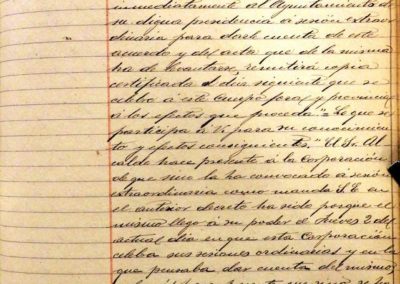 inmediatamente al Ayuntamiento de
su digna presidencia á sesión extraor
dinaria para dar cuenta de este
acuerdo y del acta que de la misma
ha de levantarse, remitirá copia
certificada el dia siguiente que se
celebre á este
á los efectos que proceda" = Lo que se
participa á V. para su conocimien
to y efectos consiguientes." El Sr. Al
calde hace presente á la Corporación
de que sino la ha convocado á sesión
extraordinaria como manda S.E. en
el anterior decreto ha sido porque el
mismo llegó á su poder el Jueves 2 del
actual dia en que esta Corporación
celebra sus sesiones ordinarias y en la
que pensaba dar cuenta del mismo